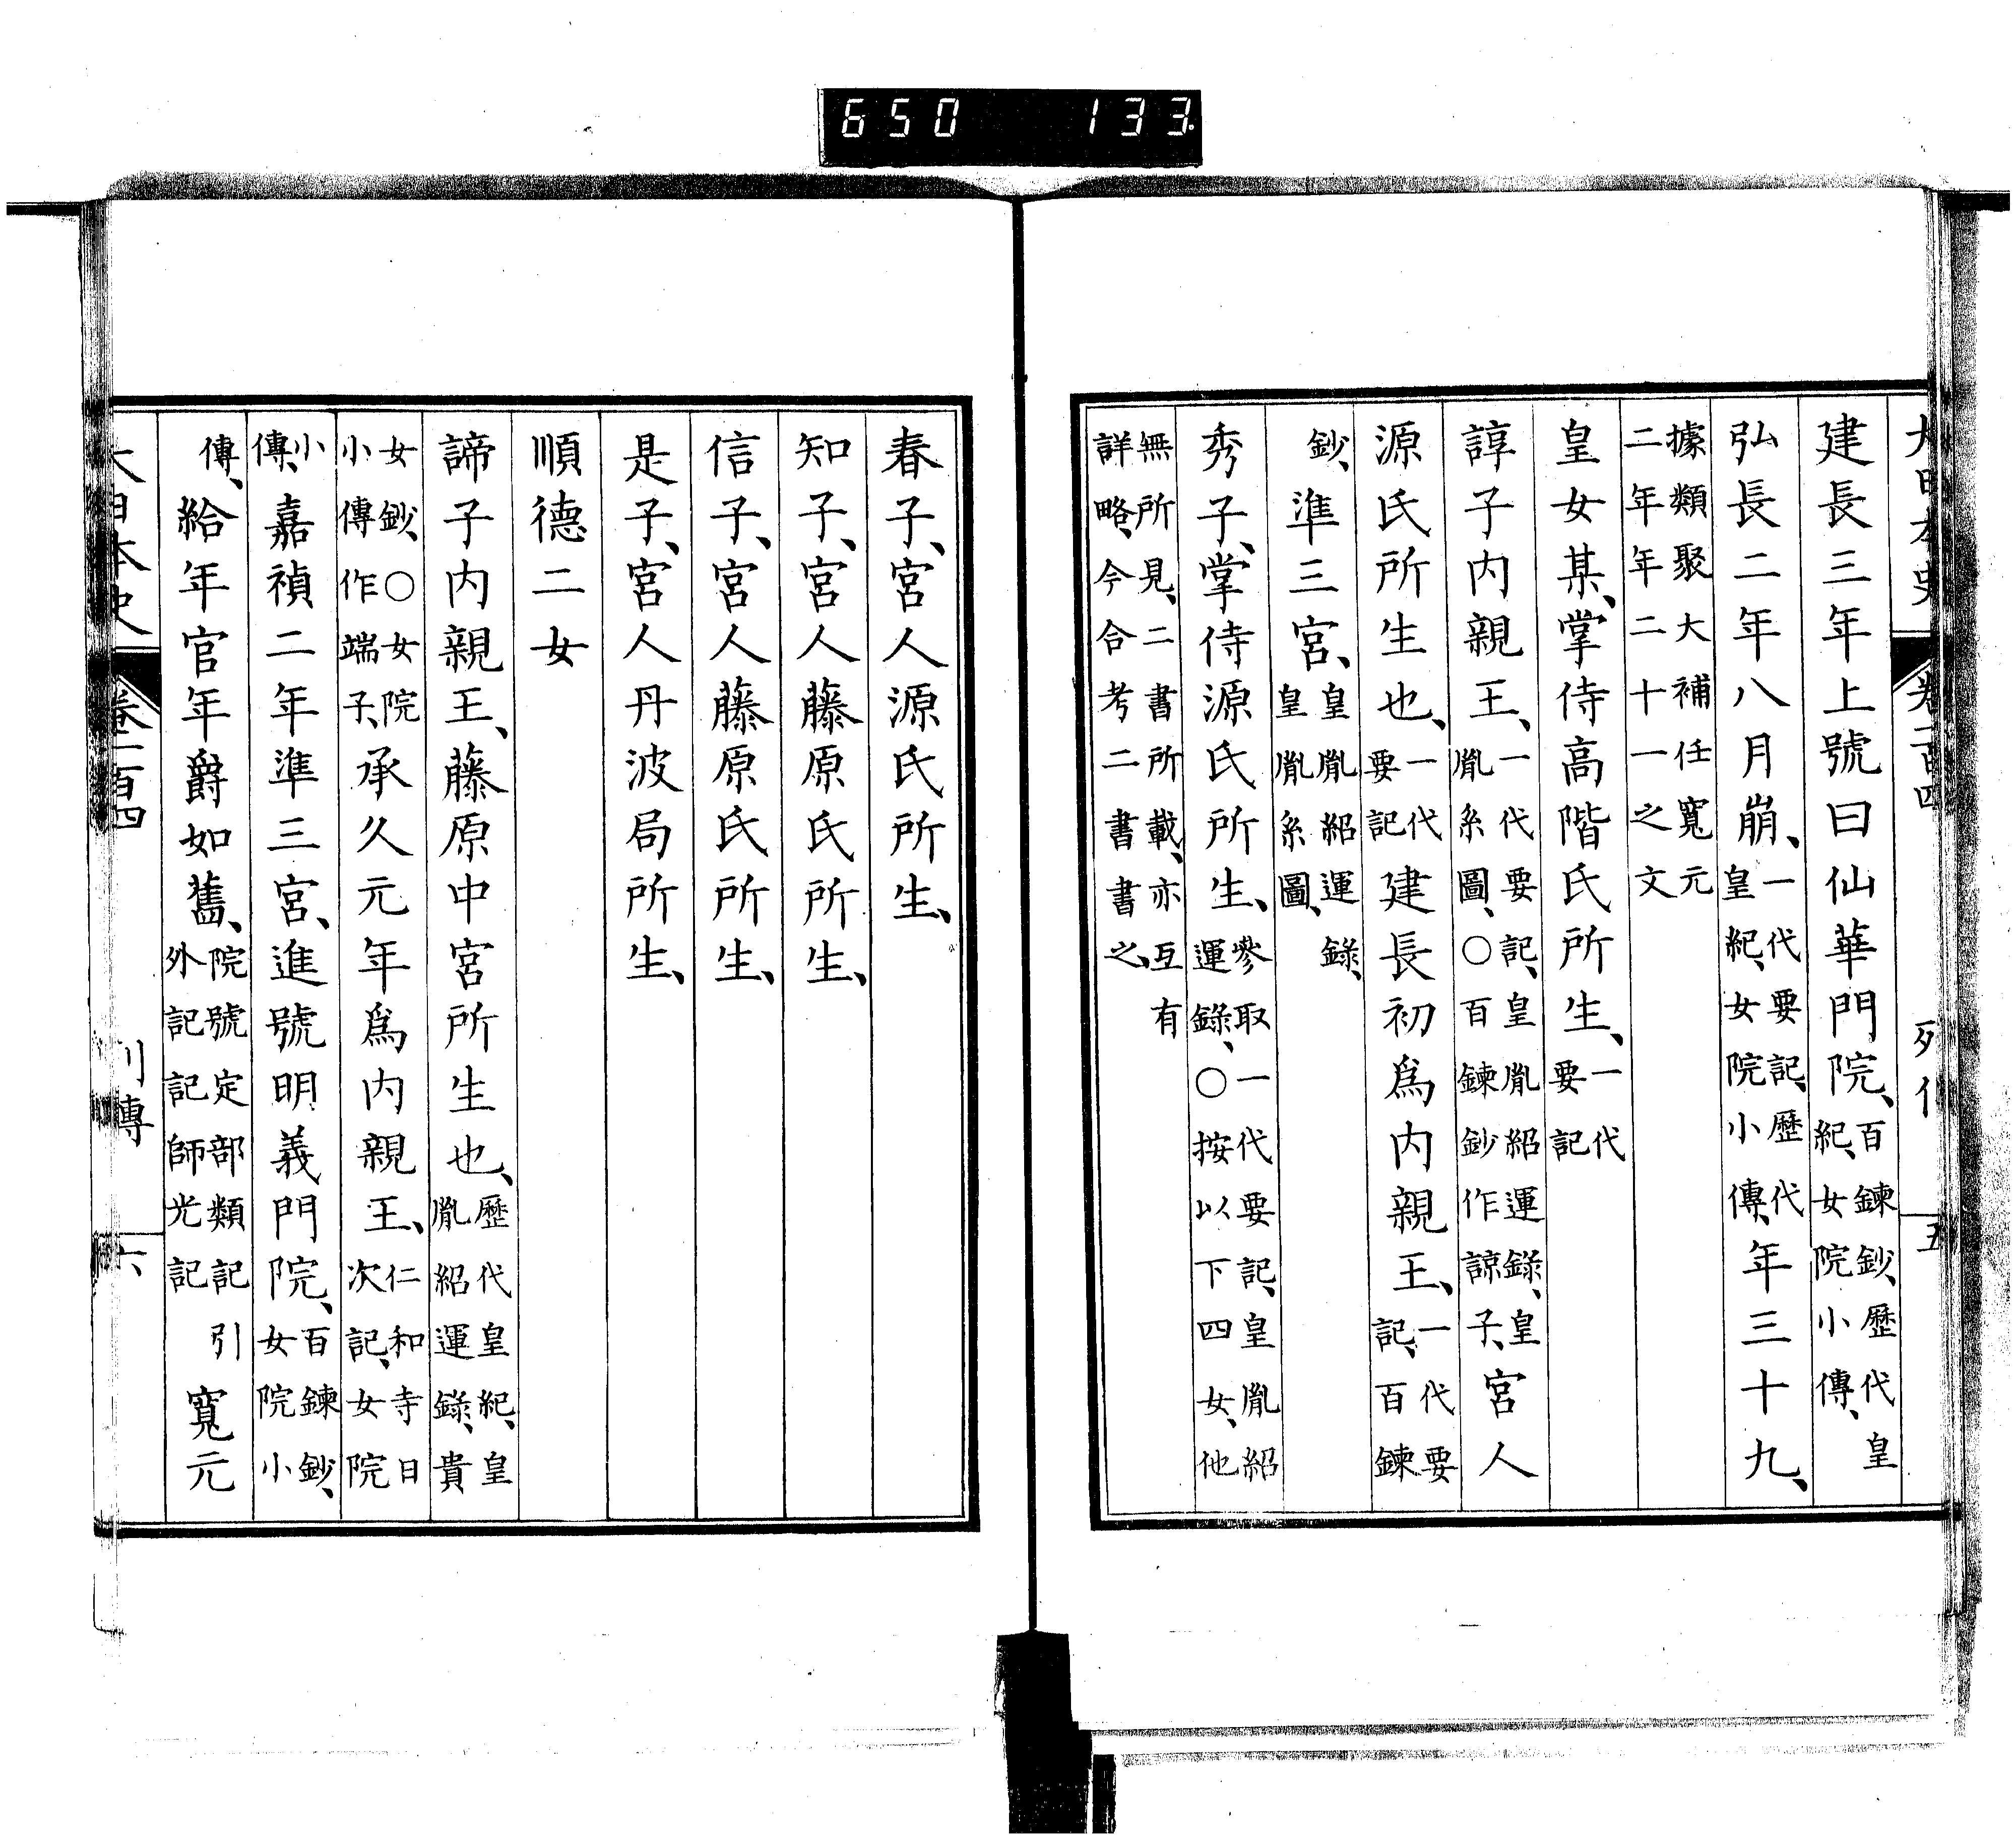 650 133
大日本史 卷一百四 列傳 五
建長三年上號曰仙華門院、百鍊鈔、歷代皇紀、女院小傳、
弘長二年八月崩、一代要記、歷代皇紀、女院小傳、年三十九、
據類聚大補任寬元二年年二十一之文
皇女某、掌侍高階氏所生、一代要記
諄子內親王、一代要記、皇胤紹運錄、皇胤系圖、○百鍊鈔作諒子、宮人
源氏所生也、一代要記建長初爲內親王、一代要記、百鍊
鈔、準三宮、皇胤紹運錄、皇胤系圖、
秀子、掌侍源氏所生、參取一代要記、皇胤紹運錄、○按以下四女、他
無所見、二書所載、亦互有詳略、今合考二書書之、
春子、宮人源氏所生、
知子、宮人藤原氏所生、
信子、宮人藤原氏所生、
是子、宮人丹波局所生、
順德二女
諦子內親王、藤原中宮所生也、歷代皇紀、皇胤紹運錄、貴
女鈔、○女院小傳作端子、承久元年爲內親王、仁和寺日次記、女院
小傳、嘉禎二年準三宮、進號明義門院、百鍊鈔、女院小
傳、給年官年爵如舊、院號定部類記引外記記師光記寬元
大日本史 卷一百四 列傳 六